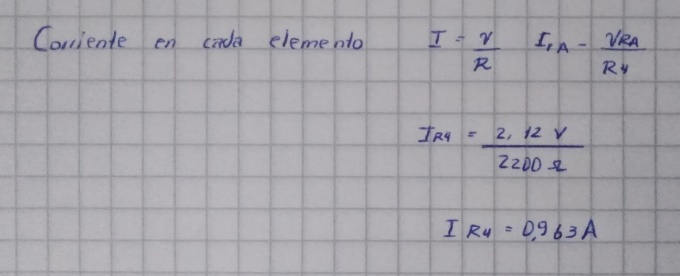 Corriente en cada elemento I = V/R I,A - VRA/R4
IR4 = 2,12 V / 2200 Ω
I R4 = 0,963A